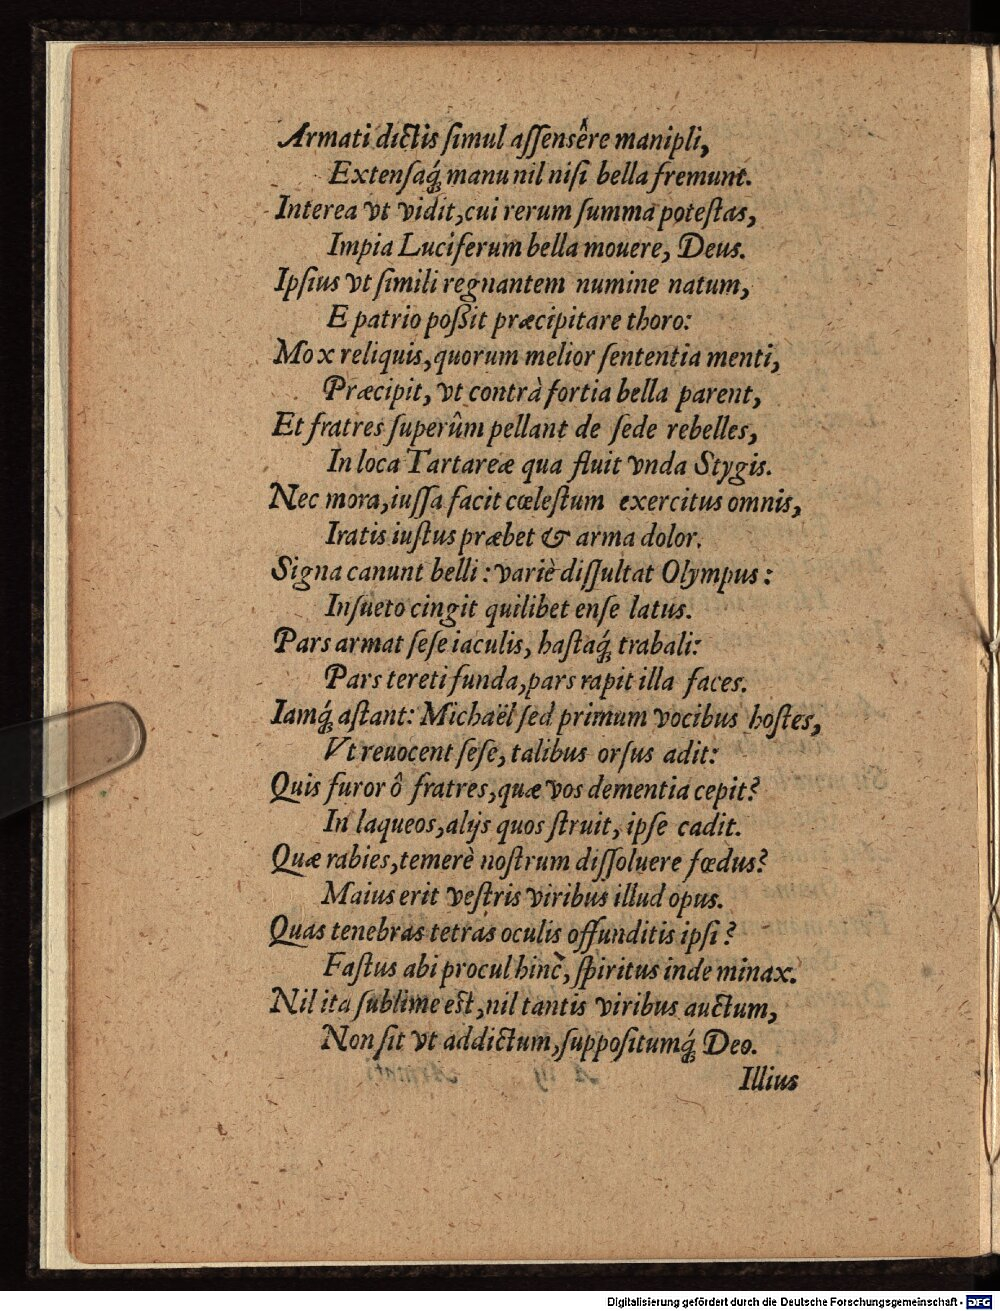 Armati dictis ſimul aſſensêre manipli,
Extenſaq́; manu nil niſi bella fremunt.
Interea vt vidit, cui rerum ſumma poteſtas,
Impia Luciferum bella mouere, Deus.
Ipſius vt ſimili regnantem numine natum,
E patrio poßit præcipitare thoro:
Mox reliquis, quorum melior ſententia menti,
Præcipit, vt contrà fortia bella parent,
Et fratres ſuperûm pellant de ſede rebelles,
In loca Tartareæ qua fluit vnda Stygis.
Nec mora, iuſſa facit cœleſtum exercitus omnis,
Iratis iuſtus præbet & arma dolor.
Signa canunt belli: variè diſſultat Olympus:
Inſueto cingit quilibet enſe latus.
Pars armat ſeſe iaculis, haſtaq́; trabali:
Pars tereti funda, pars rapit illa faces.
Iamq́; aſtant: Michaël ſed primum vocibus hoſtes,
Vt reuocent ſeſe, talibus orſus adit:
Quis furor ô fratres, quæ vos dementia cepit?
In laqueos, alijs quos ſtruit, ipſe cadit.
Quæ rabies, temerè noſtrum diſſoluere fœdus?
Maius erit veſtris viribus illud opus.
Quas tenebras tetras oculis offunditis ipſi?
Faſtus abi procul hinc, ſpiritus inde minax.
Nil ita ſublime est, nil tantis viribus auctum,
Non ſit vt addictum, ſuppoſitumq́; Deo.
Illius
Digitalisierung gefördert durch die Deutsche Forschungsgemeinschaft - DFG